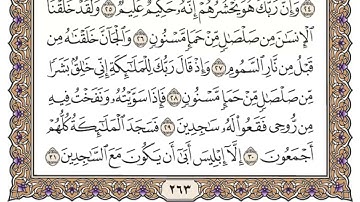 ٢٤ وَإِنَّ رَبَّكَ هُوَ يَحْشُرُهُمْ إِنَّهُ حَكِيمٌ عَلِيمٌ ٢٥ وَلَقَدْ خَلَقْنَا
الْإِنسَانَ مِن صَلْصَالٍ مِّنْ حَمَإٍ مَّسْنُونٍ ٢٦ وَالْجَانَّ خَلَقْنَاهُ مِن
قَبْلُ مِن نَّارِ السَّمُومِ ٢٧ وَإِذْ قَالَ رَبُّكَ لِلْمَلَائِكَةِ إِنِّي خَالِقٌ بَشَرًا
مِّن صَلْصَالٍ مِّنْ حَمَإٍ مَّسْنُونٍ ٢٨ فَإِذَا سَوَّيْتُهُ وَنَفَخْتُ فِيهِ
مِن رُّوحِي فَقَعُوا لَهُ سَاجِدِينَ ٢٩ فَسَجَدَ الْمَلَائِكَةُ كُلُّهُمْ
أَجْمَعُونَ ٣٠ إِلَّا إِبْلِيسَ أَبَىٰ أَن يَكُونَ مَعَ السَّاجِدِينَ ٣١
٢٦٣